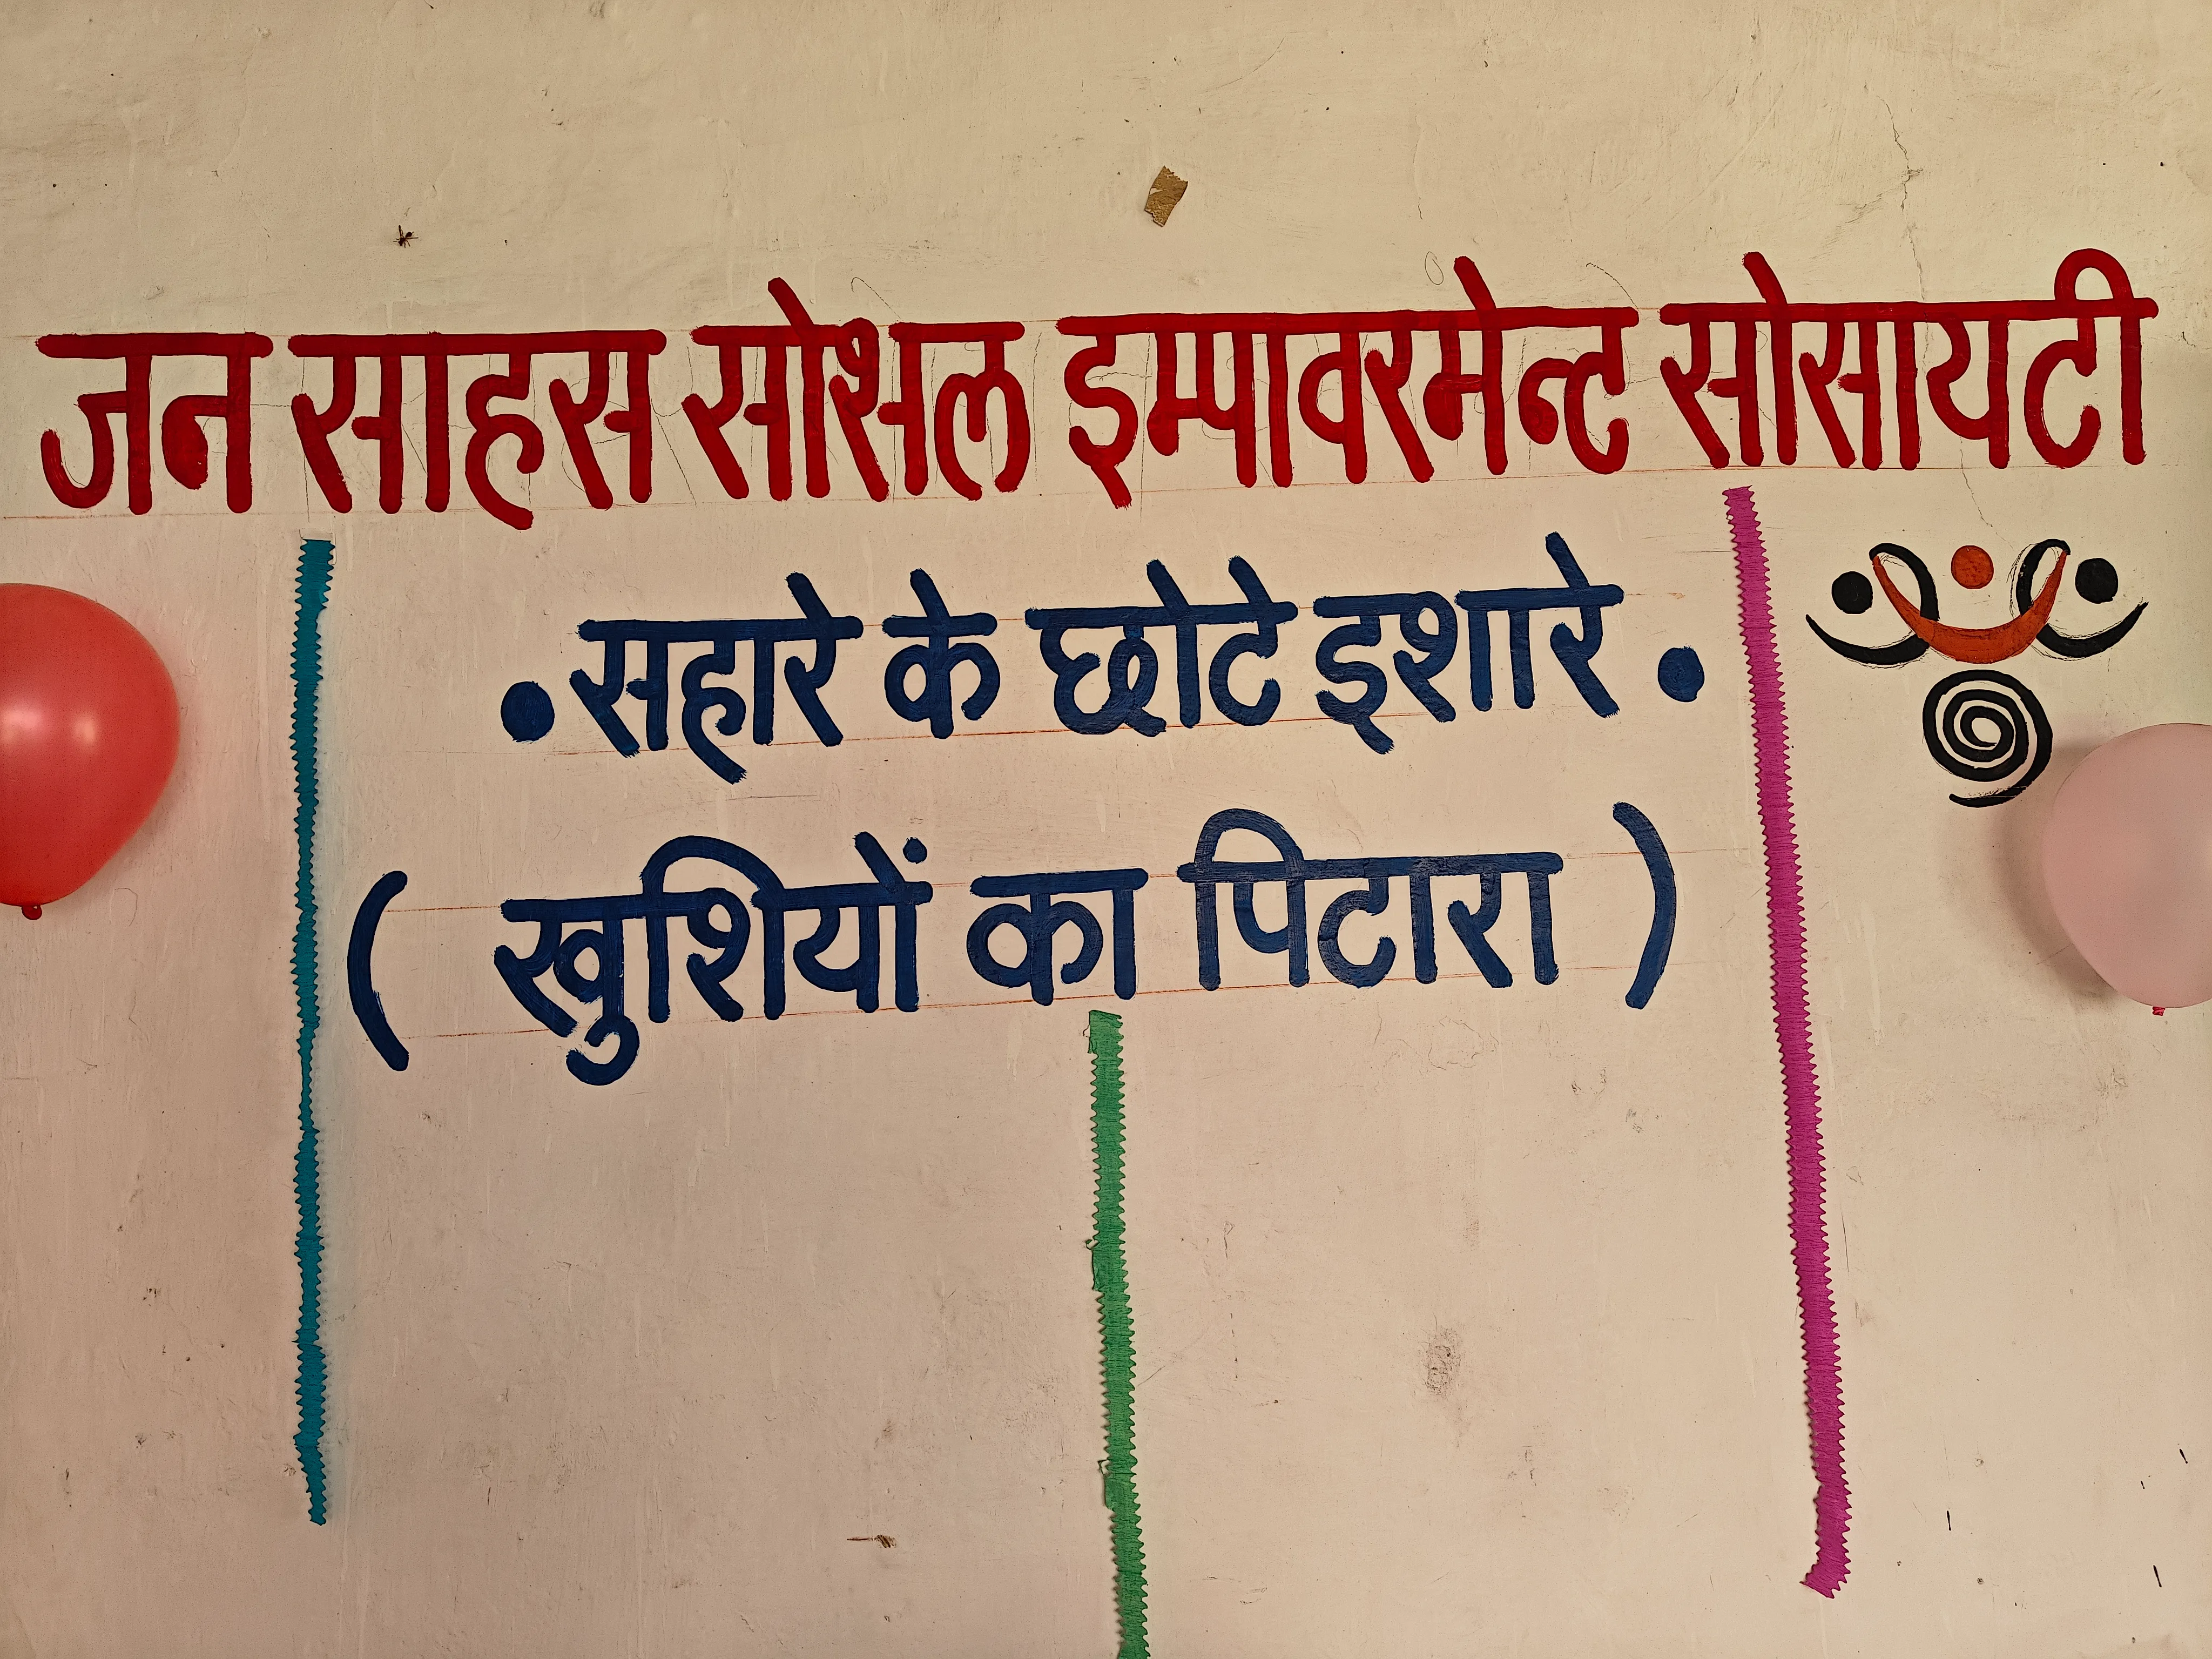 जन साहस सोशल इम्पावरमेन्ट सोसायटी
• सहारे के छोटे इशारे •
( खुशियों का पिटारा )